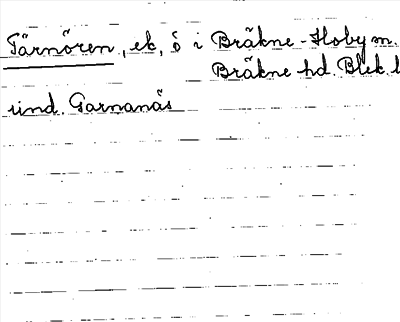 Tärnören, ek, ö i Bräkne-Hoby m.
Bräkne hd. Blek. l
und. Garnanäs